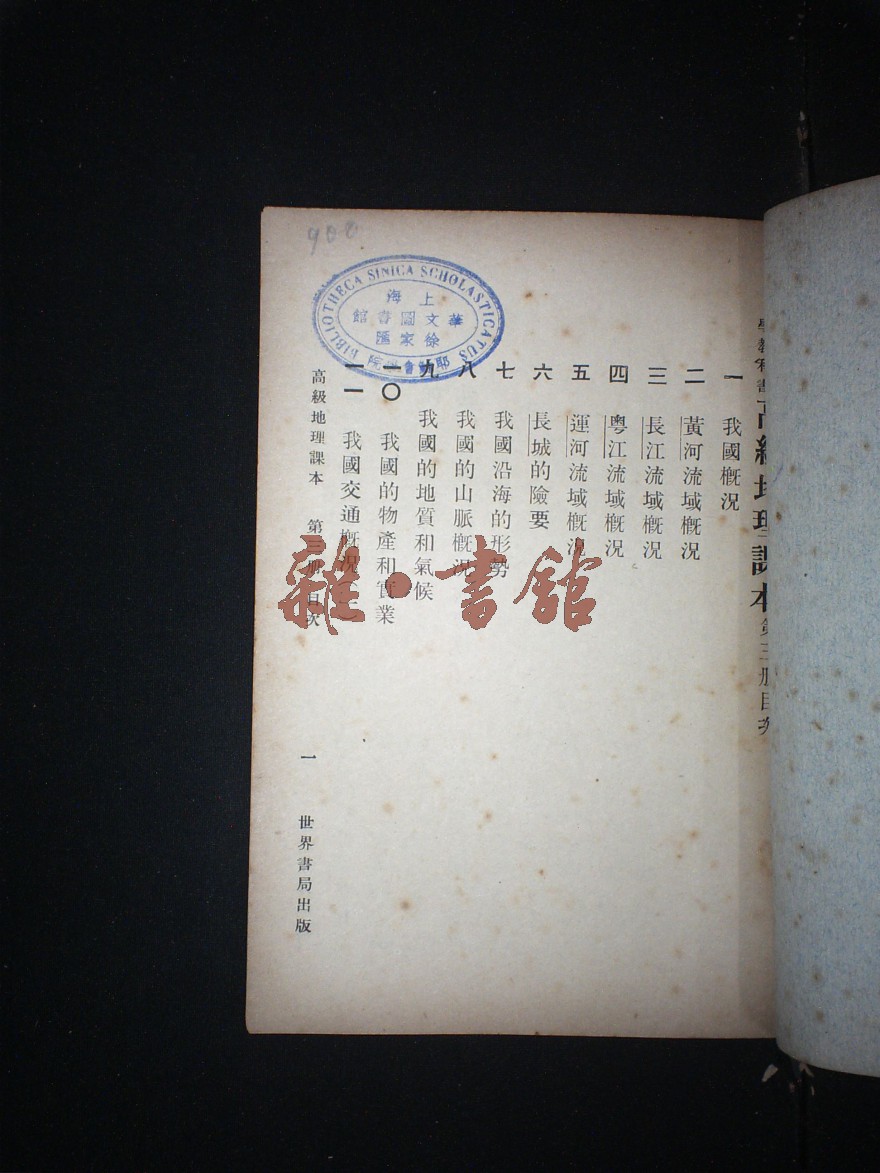 高級地理課本 第三册目次
一 我國概況
二 黃河流域概況
三 長江流域概況
四 粵江流域概況
五 運河流域概況
六 長城的險要
七 我國沿海的形勢
八 我國的山脈概況
九 我國的地質和氣候
一〇 我國的物產和實業
一一 我國交通概況
高級地理課本 第三册目次
一
世界書局出版
900
BIBLIOTHECA SINICA SCHOLASTICATUS
上海
華文圖書館
徐家匯
耶穌會
院
雜·書館